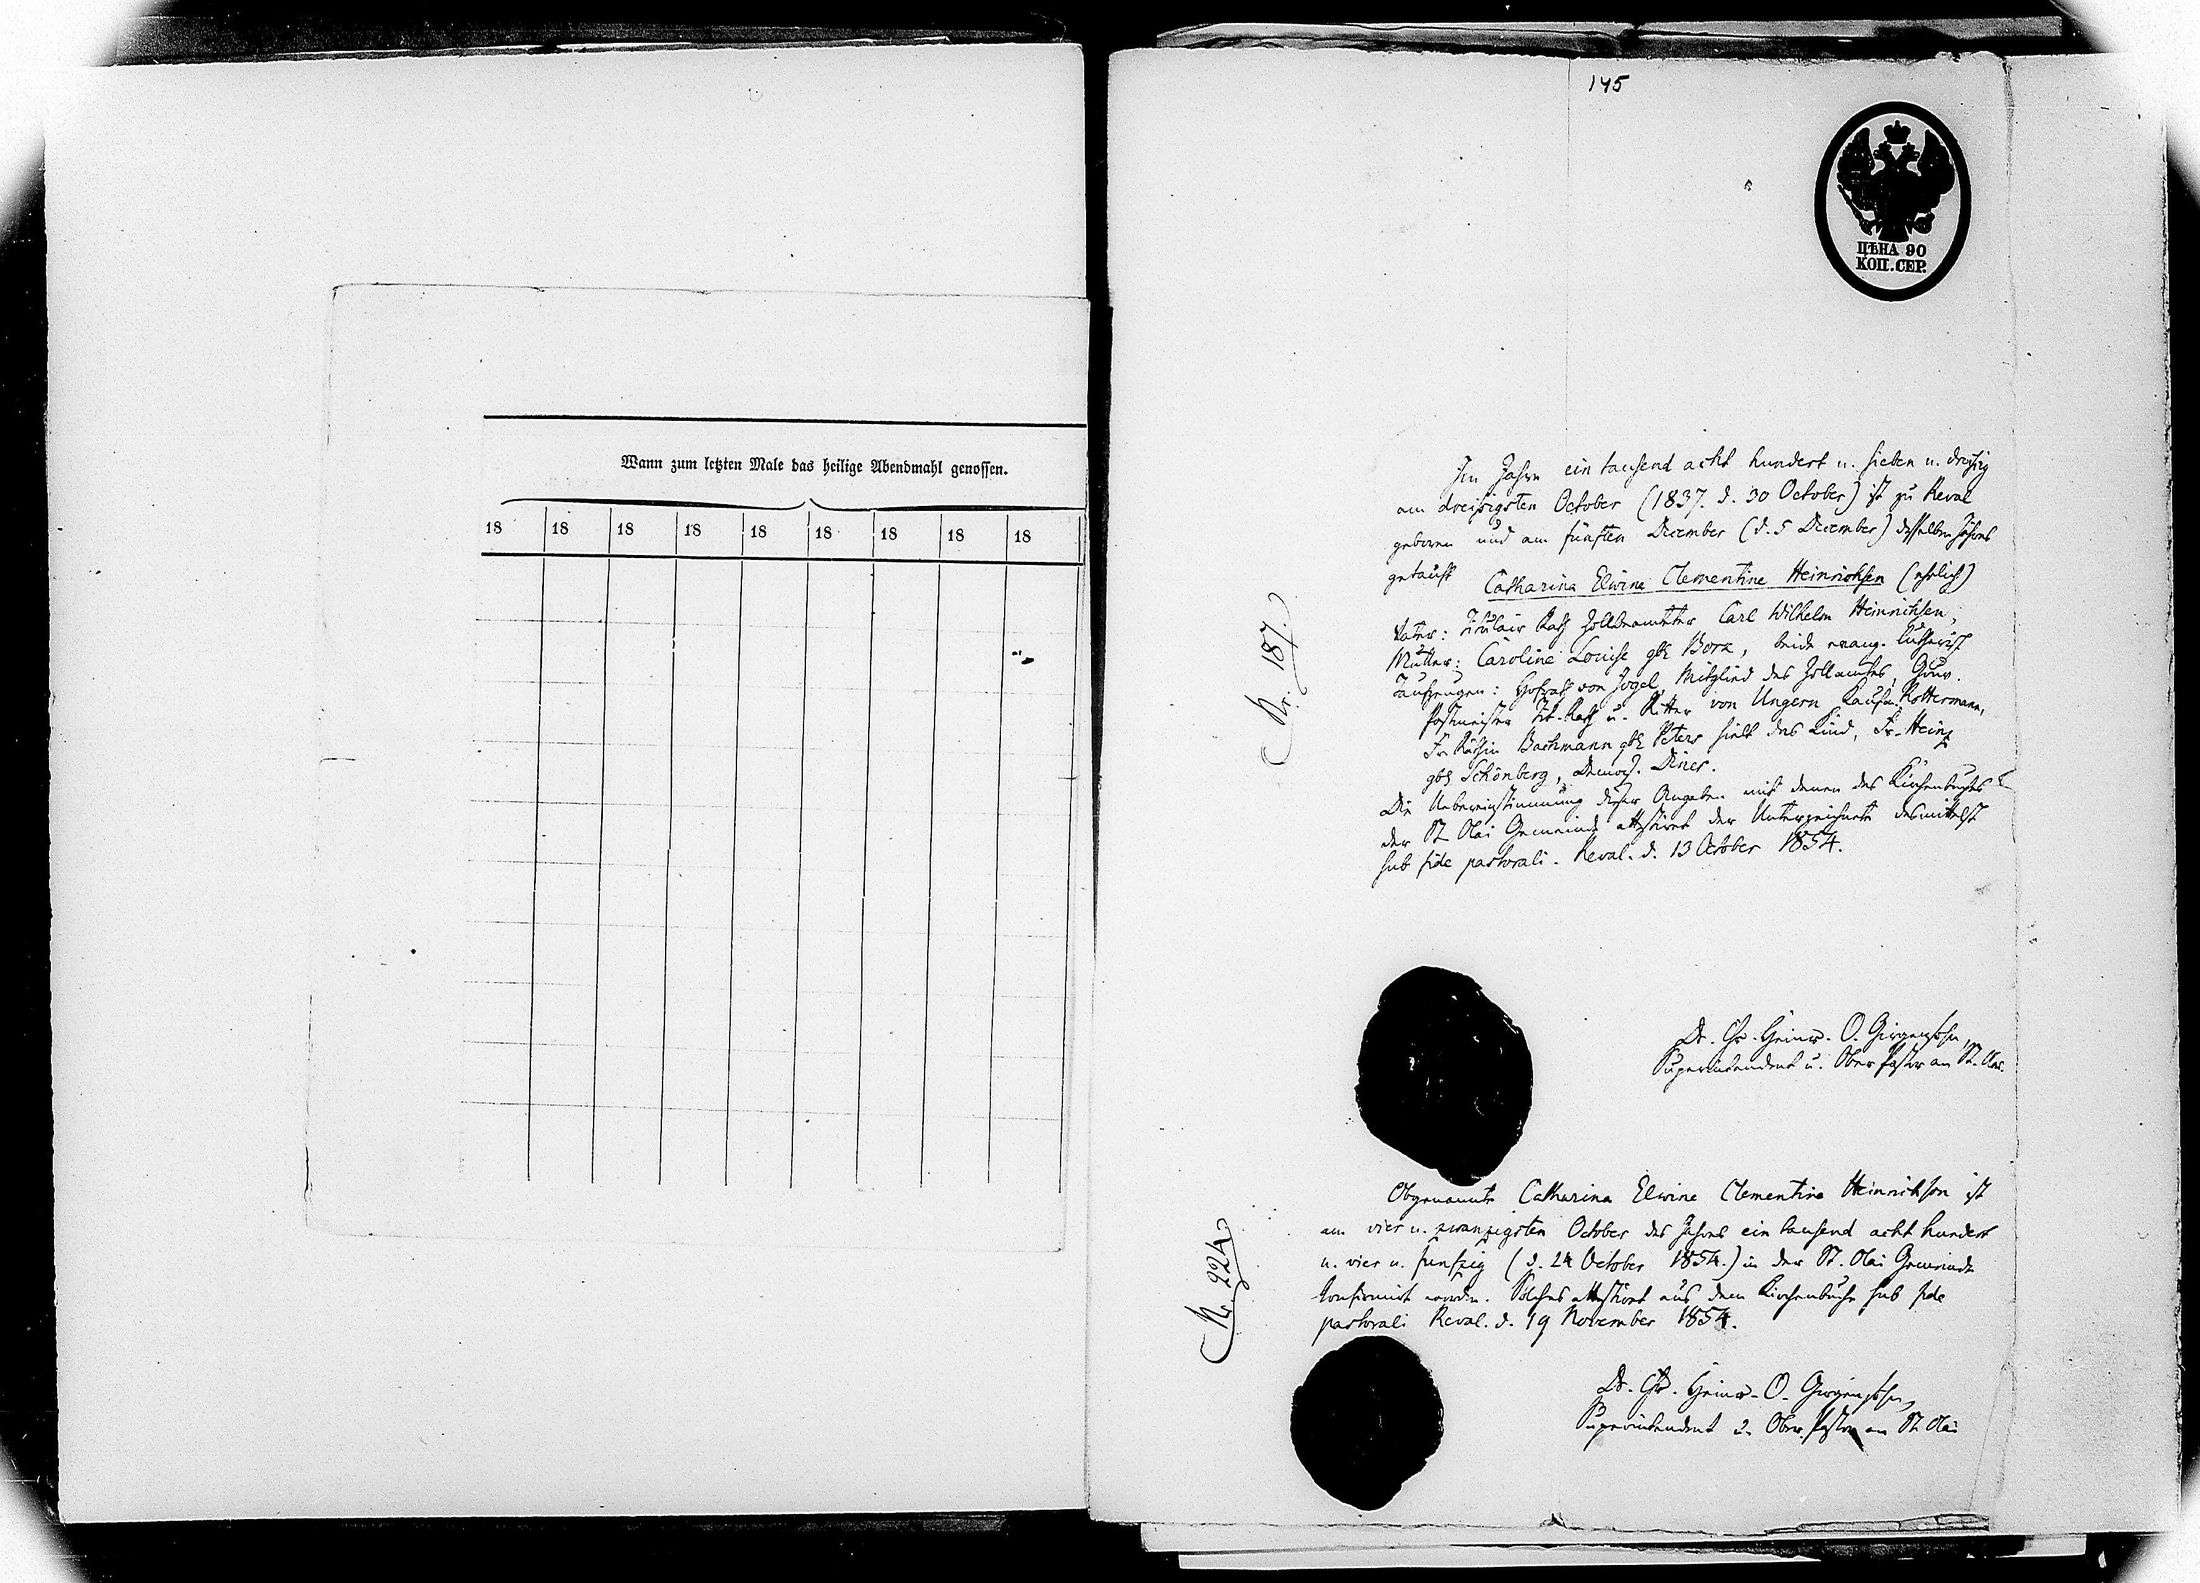 Wann zum letzten Male das heilige Abendmahl genossen.
18 18 18 18 18 18 18 18 18
145
ЦѢНА 90
КОП. СЕР.
Im Jahre ein tausend acht hundert u. sieben u. dreißig
am dreißigsten October (1837. d. 30 October) ist zu Reval
geboren und am fünften December (d. 5 December) desselben Jahres
getauft Catharina Elwine Clementine Heinrichsen (ehelich)
Nr. 187.
Vater: Titulair Rath Zollbeamteter Carl Wilhelm Heinrichsen,
Mutter: Caroline Louise geb. Bork, beide evang. lutherisch
Taufzeugen: Hofrath von Mitglied des Zollamtes, Gouv.
Postmeister Tit. Rath u. Ritter von Ungern Kaufm. Rottermann,
Fr. Räthin Bachmann geb. Peters hielt das Kind, Fr. Heinz
geb. Schönberg, Demois. Diner.
Die Uebereinstimmung dieser Angaben mit denen des Kirchenbuches
der St. Olai Gemeinde attestiret der Unterzeichnete desmittelst
sub fide pastorali. Reval. d. 13 October 1854.
Dr. Chr. Heinr. O. Girgensohn,
Superintendent u. Ober Pastor an St. Olai.
Obgenannte Catharina Elwine Clementine Heinrichsen ist
am vier u. zwanzigsten October des Jahres ein tausend acht hundert
u. vier u. funfzig (d. 24 October 1854.) in der St. Olai Gemeinde
Nr. 224
konfirmirt worden. Solches attestiret aus dem Kirchenbuche sub fide
pastorali Reval. d. 19 November 1854.
Dr. Chr. Heinr. O. Girgensohn,
Superintendent u. Ober Pastor an St. Olai